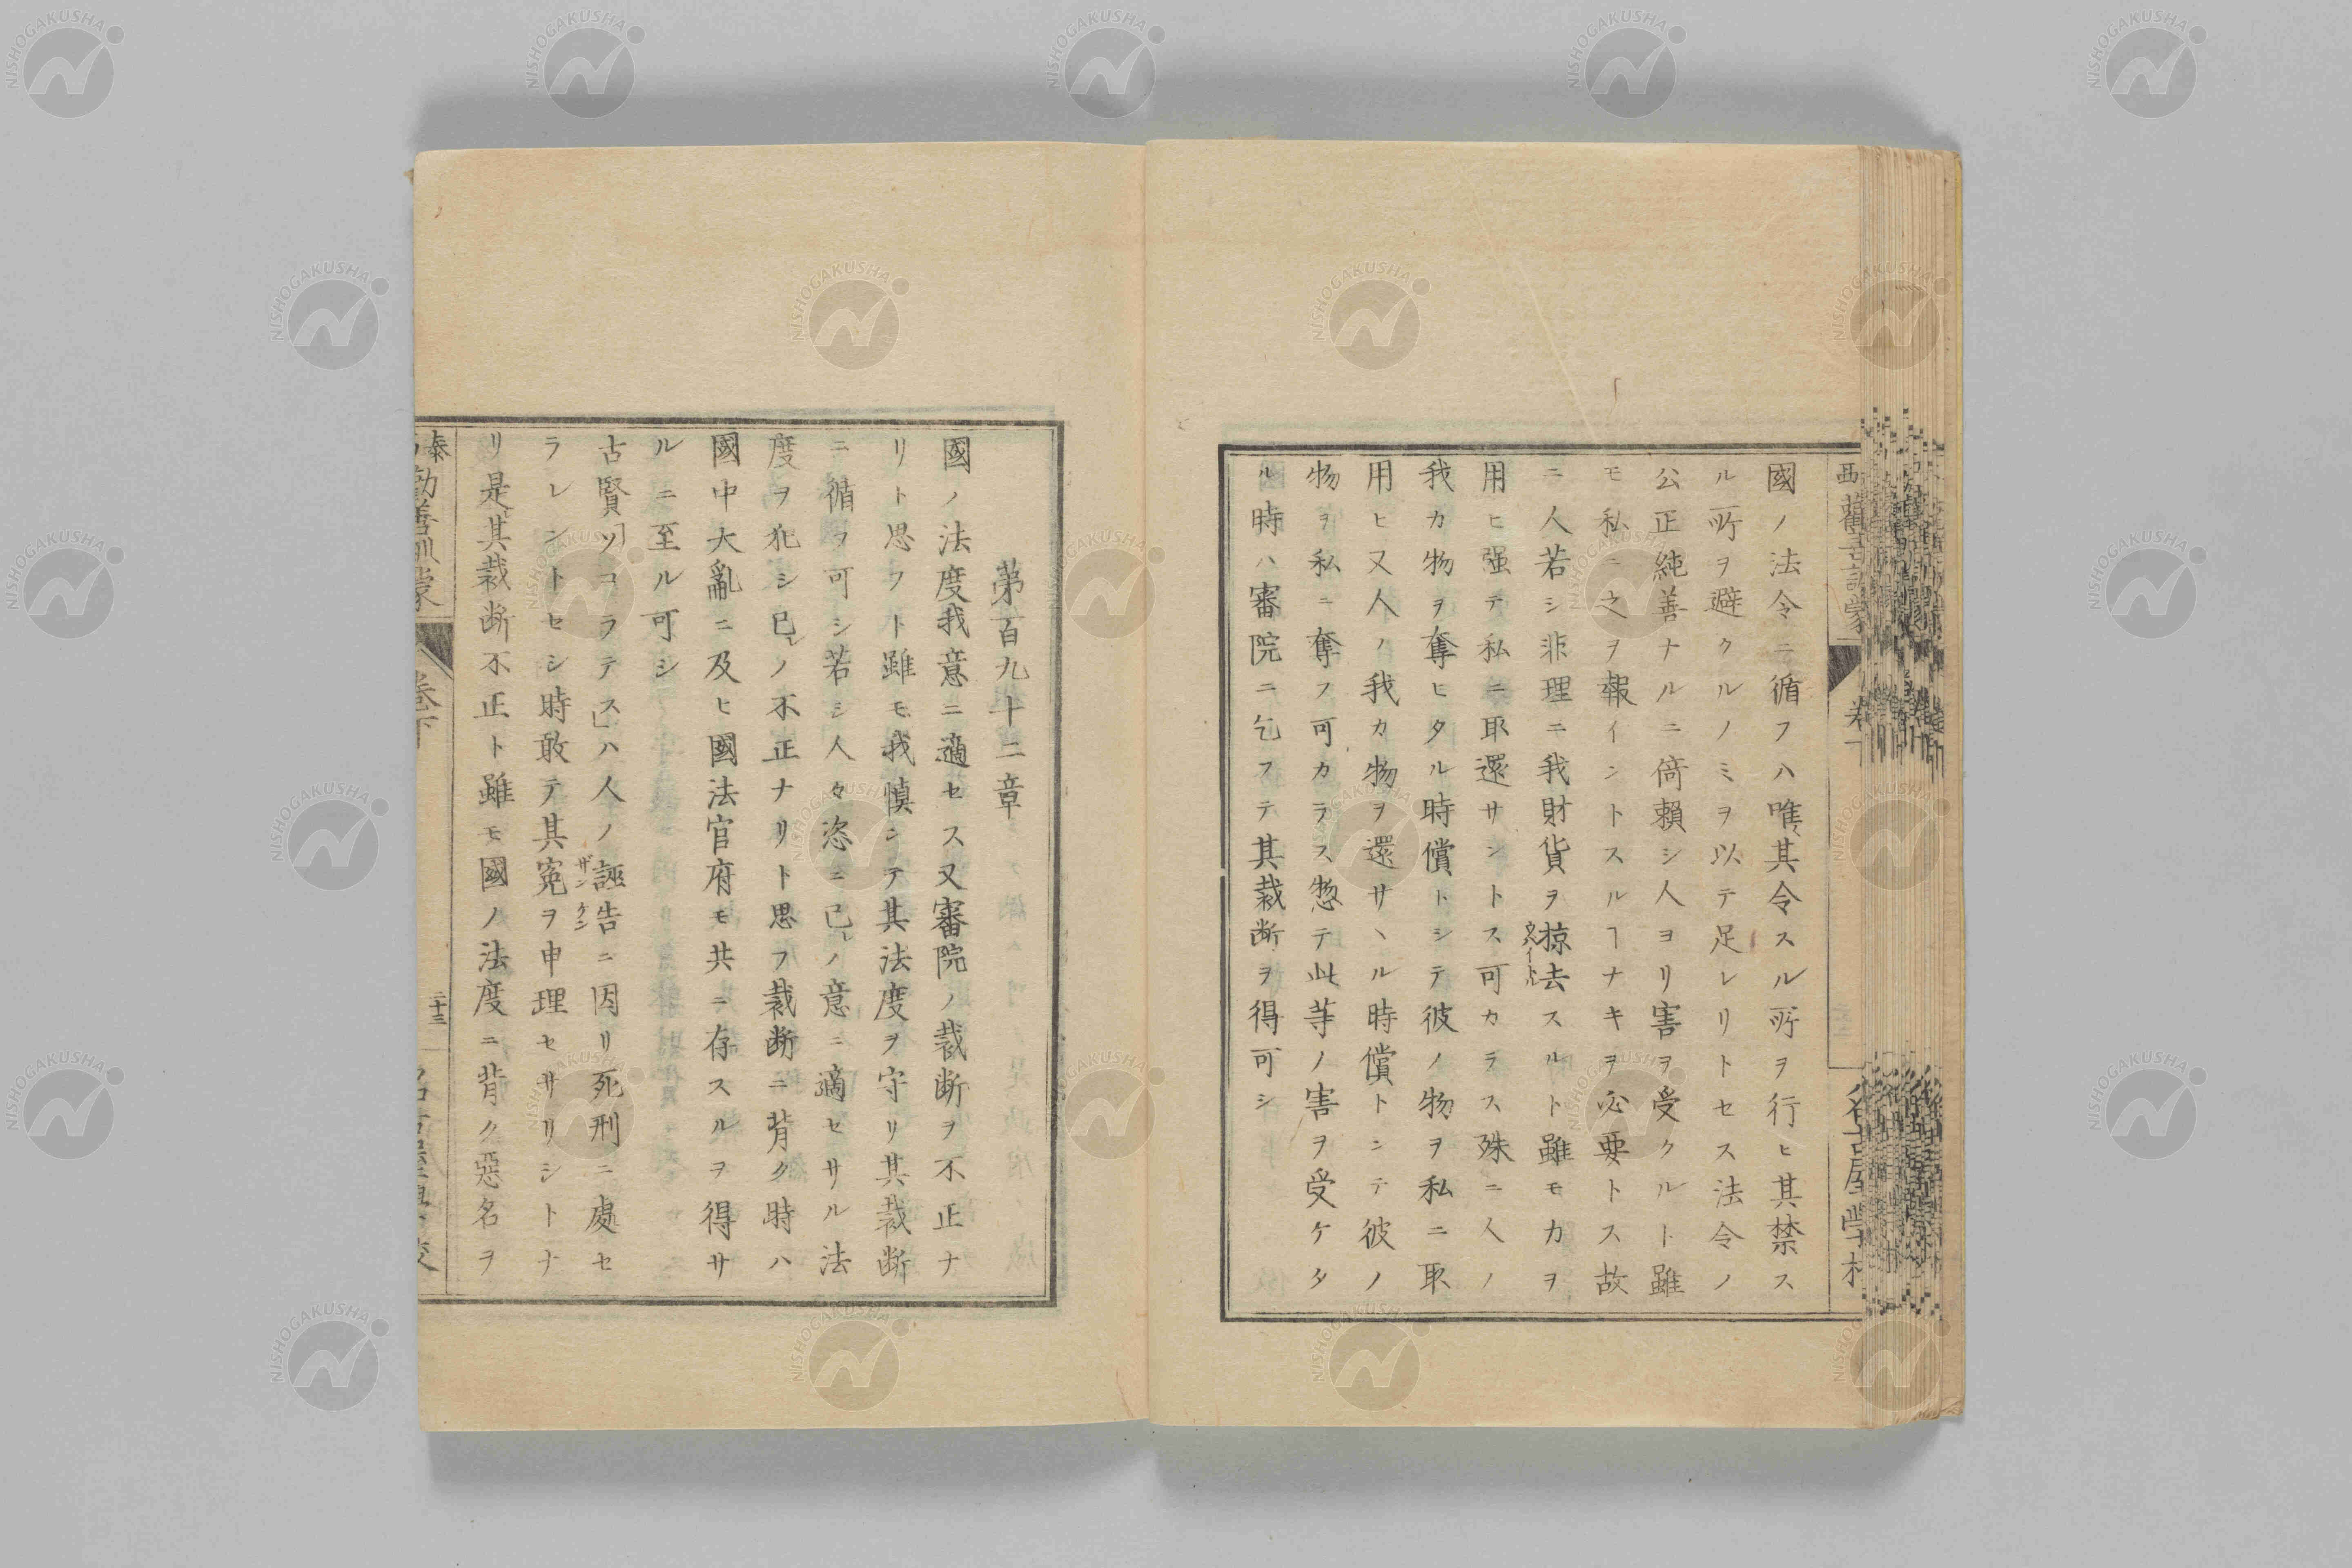 國ノ法令ニ循フハ唯其令スル所ヲ行ヒ其禁ス
ル所ヲ避クルノミヲ以テ足レリトセス法令ノ
公正純善ナルニ倚賴シ人ヨリ害ヲ受クルト雖
モ私ニ之ヲ報インドスルヿナキヲ必要トス故
ニ人若シ非理ニ我財貨ヲ掠去スルト雖モカヲ
用ヒ强テ私ニ取還サントス可カラス殊ニ人ノ
我カ物ヲ奪ヒタル時償トシテ彼ノ物ヲ私ニ取
用ヒ又人ノ我カ物ヲ還サヽル時償トシテ彼ノ
物ヲ私ニ奪フ可カラス惣テ此等ノ害ヲ受ケタ
ル時ハ審院ニ乞フテ其裁断ヲ得可シ
第百九十二章
國ノ法度我意ニ適セス又審院ノ裁断ヲ不正ナ
リト思フト雖モ我慎ンテ其法度ヲ守リ其裁断
ニ循フ可シ若シ人々恣ニ已レノ意ニ適セサル法
度ヲ犯シ已レノ不正ナリト思フ裁断ニ背ク時ハ
國中大亂ニ及ヒ國法官府モ共ニ存スルヲ得サ
ルニ至ル可シ
古賢「ソコラテス」ハ人ノ誣告ニ因リ死刑ニ處セ
ザンケン
ラレントセシ時敢テ其冤ヲ申理セサリシトナ
リ是其裁断不正ト雖モ國ノ法度ニ背ク惡名ヲ
泰 勸善訓蒙
卷下
二十三
NISHOGAKUSHA